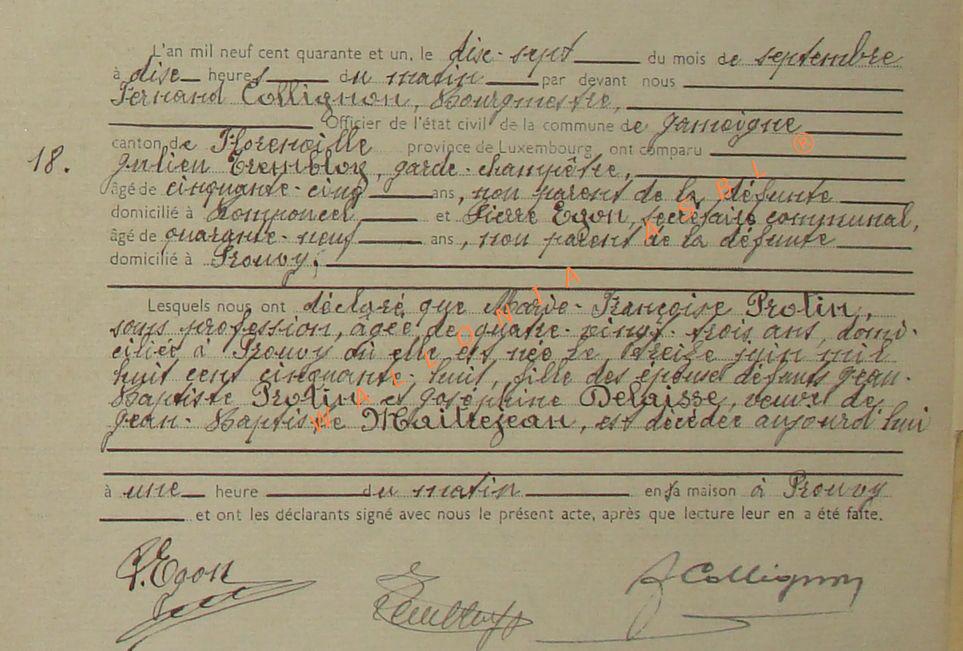 L'an mil neuf cent quarante et un, le dix-sept du mois de septembre
à dix heures du matin par devant nous
Fernand Collignon, Bourgmestre,
Officier de l'état civil de la commune de Jamoigne
canton de Florenville province de Luxembourg, ont comparu
18. Julien Trembloy, garde-champêtre,
âgé de cinquante-cinq ans, non parent de la défunte
domicilié à Romponcel et Pierre Egon, secrétaire communal,
âgé de quarante-neuf ans, non parent de la défunte
domicilié à Prouvy;
Lesquels nous ont déclaré que Marie-Françoise Protin,
sans profession, âgée de quatre-vingt-trois ans, domi-
ciliée à Prouvy où elle est née le treize juin mil
huit cent cinquante-huit, fille des époux défunts Jean-
Baptiste Protin et Joséphine Delaisse, veuve de
Jean-Baptiste Maitrejean, est décédée aujourd'hui
à une heure du matin en sa maison à Prouvy
et ont les déclarants signé avec nous le présent acte, après que lecture leur en a été faite.
P. Egon
F. Collignon
WALLONIA ASBL ®